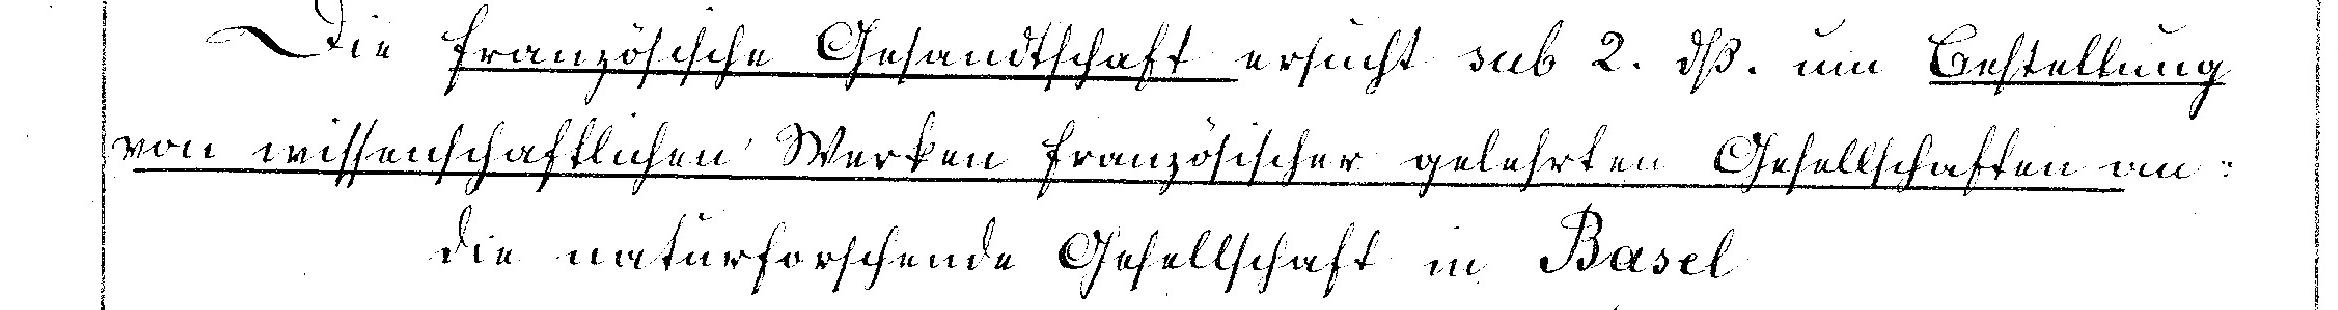 Die französische Gesandtschaft ersucht sub 2. dß. um Bestellung
von wissenschaftlichen Werken französischer gelehrten Gesellschaften an:
die naturforschende Gesellschaft in Basel